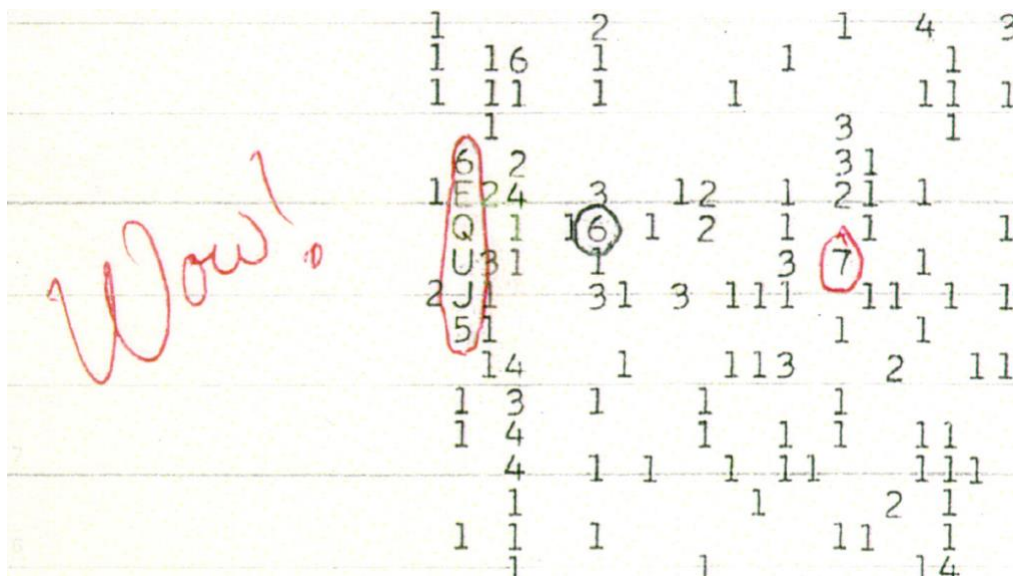 1 2 1 4 3
1 16 1 1 1
1 11 1 1 11 1
1 3 1
6 2 31
1E24 3 12 1 21 1
Q 1 16 1 2 1 1 1
Wow!
U31 1 3 7 1
2J1 31 3 111 11 1 1
51 1 1
14 1 113 2 11
1 3 1 1 1
1 4 1 1 1 11
4 1 1 1 11 111
1 1 2 1
1 1 1 11 1
1 1 14